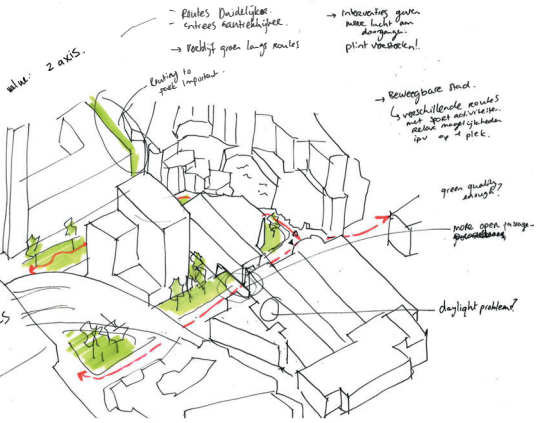 - Routes Duidelijker.
- Entrees aantrekkelijker.
→ Verblijf groen langs routes
→ Interventies geven
meer lucht aan
doorgangen.
plint versterken!.
value: 2 axis.
Routing to
park important.
→ Beweegbare stad.
↳ verschillende routes
met sport activiteiten.
Relax mogelijkheden
ipv op 1 plek.
green quality
enough?
more open passage
daylight problems?